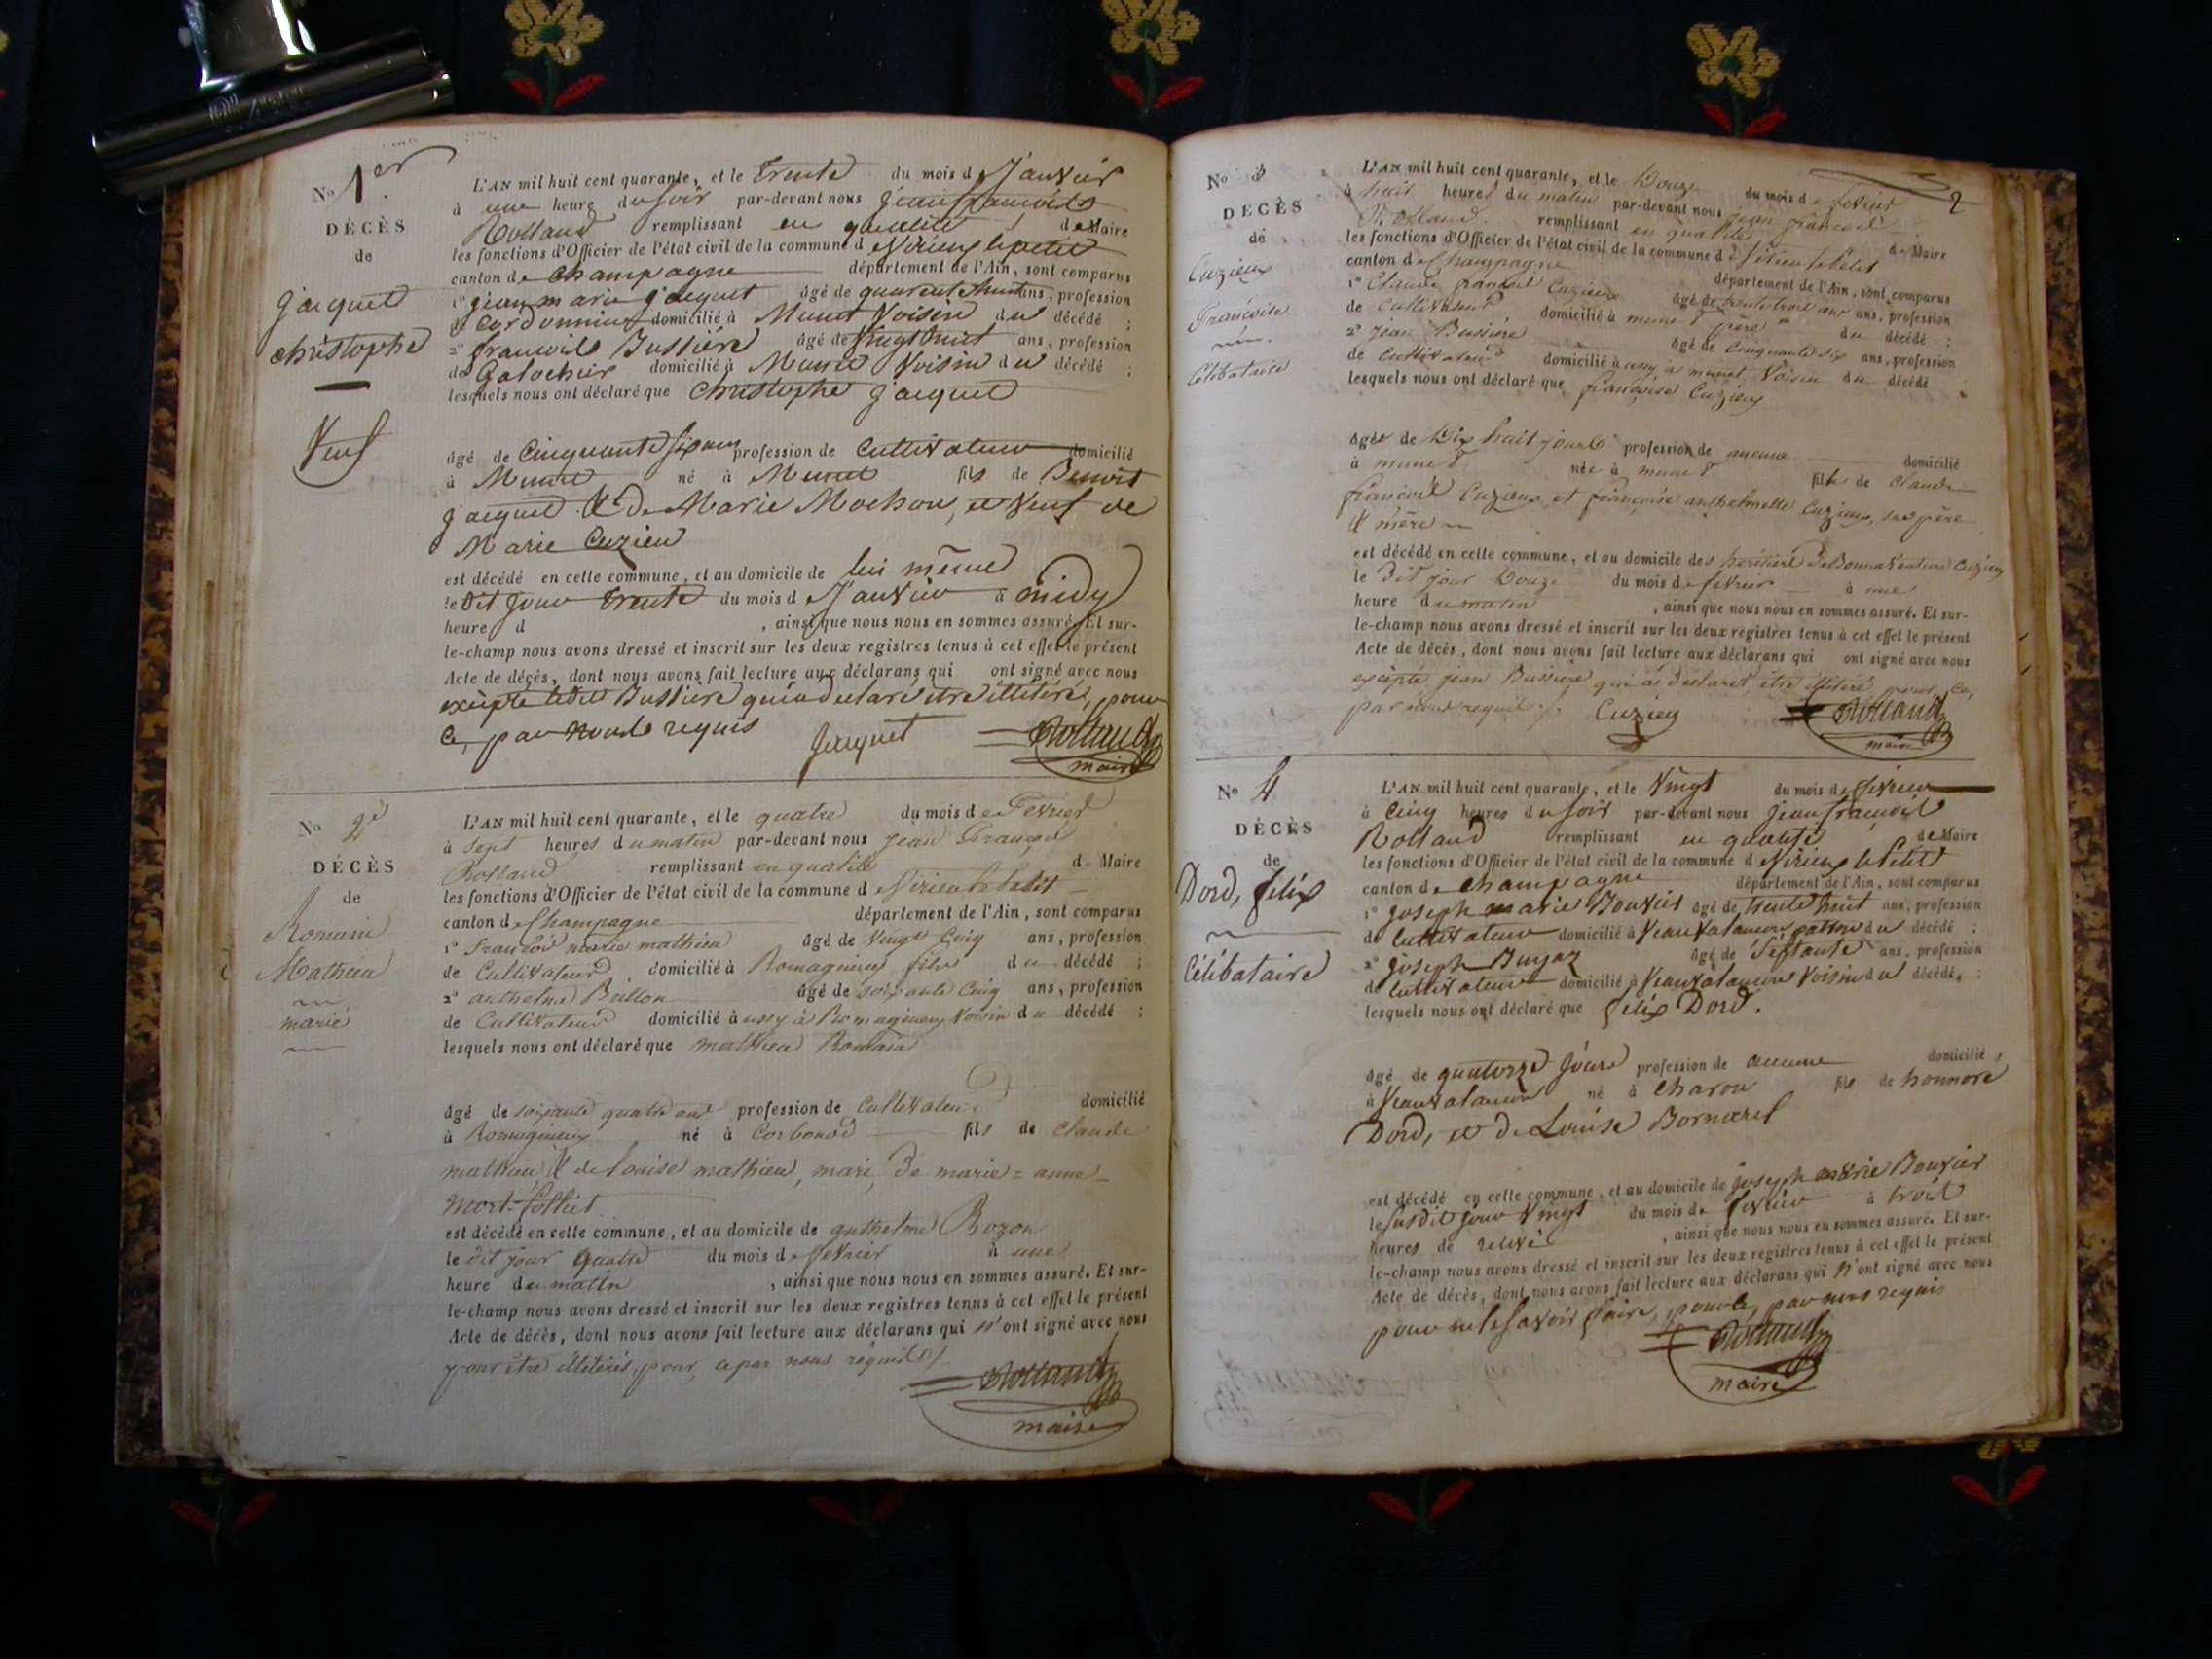 No 1er
DÉCÈS
de
jacquet
christophe
Veuf
L'AN mil huit cent quarante, et le trente du mois de Janvier
à une heure du soir par-devant nous jean francois
Rolland remplissant en qualité de Maire
les fonctions d'Officier de l'état civil de la commune de Virieu le petit
canton de champagne département de l'Ain, sont comparus
1° jean marie jacquet âgé de quarente huit ans, profession
de Cordonnier domicilié à Munet Voisin du décédé ;
2° francois Bussière âgé de Vingt huit ans, profession
de Galochier domicilié à Munet Voisin du décédé ;
lesquels nous ont déclaré que Christophe jacquet
âgé de Cinquante six ans profession de Cultivateur domicilié
à Munet né à Munet fils de Benoit
jacquet & de Marie Mochon, et Veuf de
Marie Cuzieu
est décédé en cette commune, et au domicile de lui même
le Dit jour trente du mois d Janvier à midy
heure d , ainsi que nous nous en sommes assuré. Et sur-
le-champ nous avons dressé et inscrit sur les deux registres tenus à cet effet le présent
Acte de décès, dont nous avons fait lecture aux déclarans qui ont signé avec nous
excepté ledit Bussière qui a declaré être illitéré, pour
ce, par nous requis Jacquet Rolland
maire
No 2e
DÉCÈS
de
Romain
Mathieu
marié
L'AN mil huit cent quarante, et le quatre du mois de Fevrier
à sept heures du matin par-devant nous jean François
Rolland remplissant en qualité de Maire
les fonctions d'Officier de l'état civil de la commune d Virieu le petit
canton de Champagne département de l'Ain, sont comparus
1° francois marie mathieu âgé de Vingt Cinq ans, profession
de Cultivateur domicilié à Romagnieux fils du décédé ;
2° anthelme Baillon âgé de soixante Cinq ans, profession
de Cultivateur domicilié à ussy à Romagnieux Voisin du décédé ;
lesquels nous ont déclaré que mathieu Romain
âgé de soixante quatre ans profession de Cultivateur domicilié
à Romagnieux né à Corbonod fils de Claude
mathieu & de louise mathieu, mari, de marie=anne
mort-folliet
est décédé en cette commune, et au domicile de anthelme Rozon
le dit jour quatre du mois de fevrier à une
heure du matin , ainsi que nous nous en sommes assuré. Et sur-
le-champ nous avons dressé et inscrit sur les deux registres tenus à cet effet le présent
Acte de décès, dont nous avons fait lecture aux déclarans qui n'ont signé avec nous
pour être illitérés, pour, ce par nous requis
Rolland
maire
2
No 3
DÉCÈS
de
Cuzieux
Françoise
Célibataire
L'AN mil huit cent quarante, et le Douze du mois de fevrier
à huit heures du matin par-devant nous jean francois
Rolland remplissant en qualité de Maire
les fonctions d'Officier de l'état civil de la commune d Virieu le Petit
canton de Champagne département de l'Ain, sont comparus
1° Claude francois Cuzieux âgé de trente trois ans ans, profession
de Cultivateur domicilié à munet père du décédé ;
2° jean Bussière âgé de Cinquante six ans, profession
de Cultivateur domicilié à ussy à munet Voisin du décédé
lesquels nous ont déclaré que françoise Cuzieux
âgée de Dix huit jours profession de aucune domicilié
à munet née à munet fille de Claude
francois Cuzieux et françoise anthelmette Cuzieux, ses père
& mère
est décédé en cette commune, et au domicile des heritiers de Bonnaventure Cuzieu
le dit jour Douze du mois de fevrier à une
heure du matin , ainsi que nous nous en sommes assuré. Et sur-
le-champ nous avons dressé et inscrit sur les deux registres tenus à cet effet le présent
Acte de décès, dont nous avons fait lecture aux déclarans qui ont signé avec nous
excepté jean Bussière qui a déclaré être illitéré pour, ce,
par nous requis Cuzieu Rolland
maire
No 4
DÉCÈS
de
Dord, felix
Célibataire
L'AN mil huit cent quarante, et le Vingt du mois de fevrier
à Cinq heures du soir par-devant nous jean francois
Rolland remplissant en qualité de Maire
les fonctions d'Officier de l'état civil de la commune d Virieu le Petit
canton de champagne département de l'Ain, sont comparus
1° joseph marie Bouvier âgé de trente huit ans, profession
de Cultivateur domicilié à du décédé ;
2° joseph Bujoz âgé de septante ans, profession
de Cultivateur domicilié à Voisin du décédé ;
lesquels nous ont déclaré que felix Dord.
âgé de quatorze jours profession de aucune domicilié
à né à Charon fils de honnoré
Dord, et de Louise Bornarel
est décédé en cette commune, et au domicile de joseph marie Bouvier
le susdit jour Vingt du mois de fevrier à trois
heures de relevé , ainsi que nous nous en sommes assuré. Et sur-
le-champ nous avons dressé et inscrit sur les deux registres tenus à cet effet le présent
Acte de décès, dont nous avons fait lecture aux déclarans qui n'ont signé avec nous
pour ne le savoir faire, pour ce, par nous requis
Rolland
maire